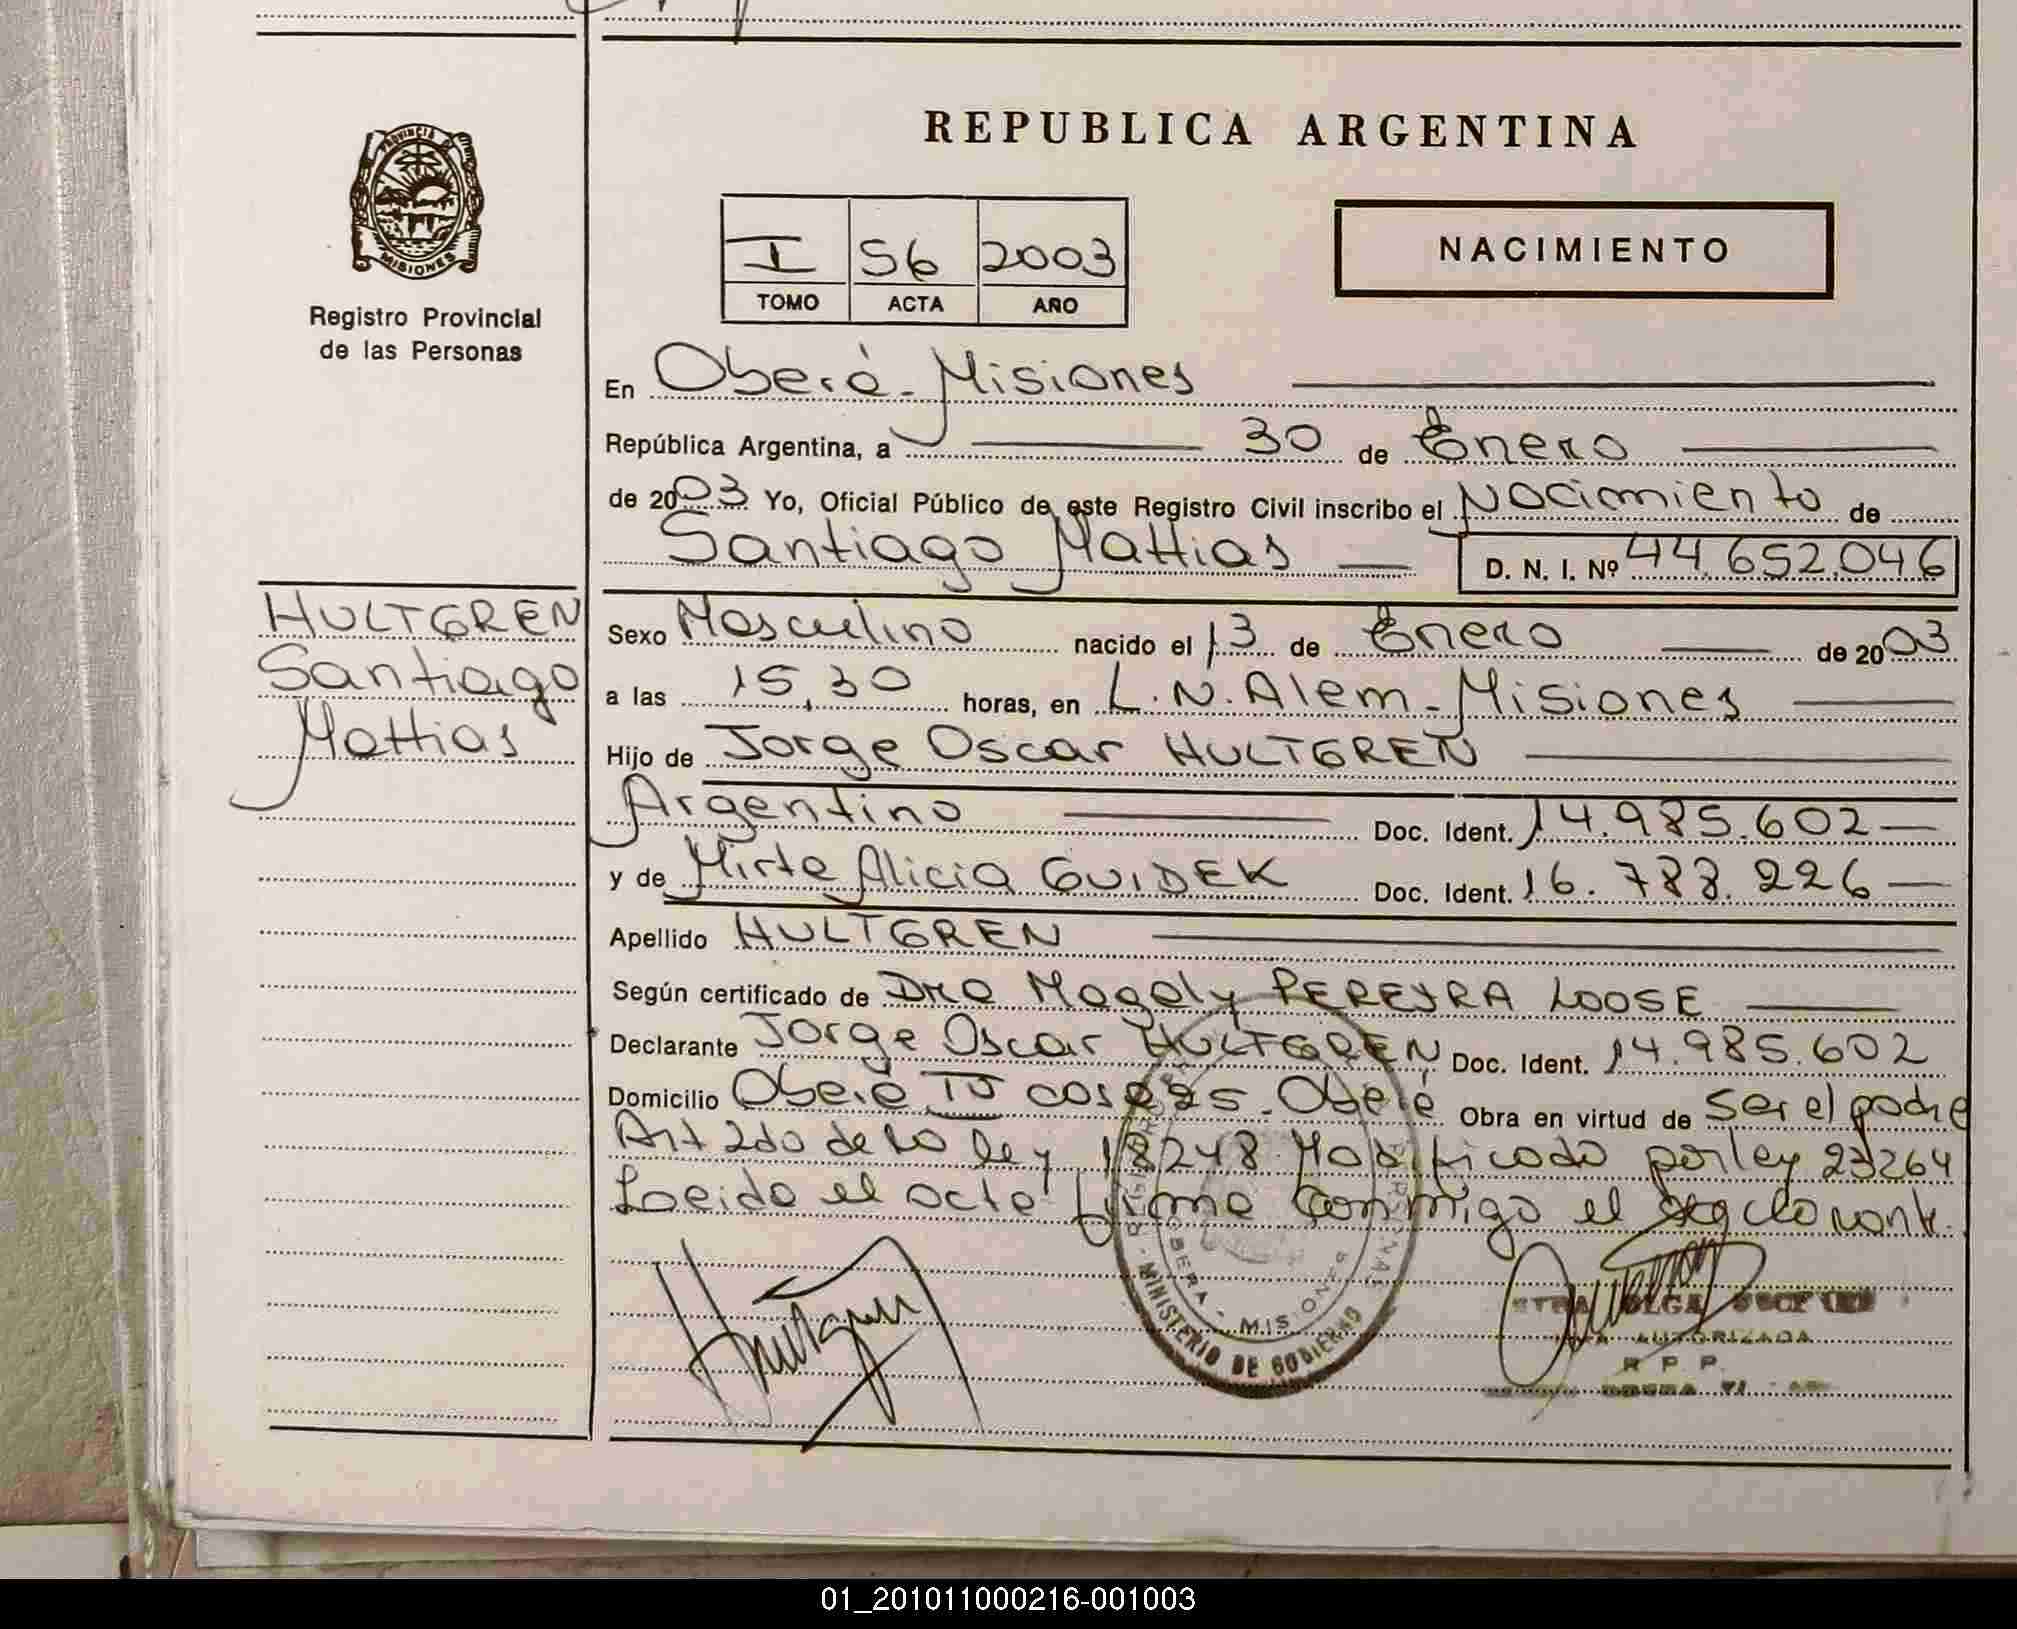 PROVINCIA
MISIONES
Registro Provincial
de las Personas
REPUBLICA ARGENTINA
I 56 2003
TOMO ACTA AÑO
NACIMIENTO
En Oberá - Misiones
República Argentina, a 30 de Enero
de 2003 Yo, Oficial Público de este Registro Civil inscribo el Nacimiento de
Santiago Mattias D. N. I. Nº 44.652.046
HULTGREN
Santiago
Mattias
Sexo Masculino nacido el 13 de Enero de 2003
a las 15,30 horas, en L. N. Alem - Misiones
Hijo de Jorge Oscar HULTGREN
Argentino Doc. Ident. 14.985.602
y de Mirta Alicia GUIDEK Doc. Ident. 16.788.226
Apellido HULTGREN
Según certificado de Dra Magaly PEREYRA LOOSE
Declarante Jorge Oscar HULTGREN Doc. Ident. 14.985.602
Domicilio Oberá IV casa Oberá Obra en virtud de ser el padre
Art 2do de la ley 18248 Modificado por ley 23264
Leida el acta firma conmigo el declarante.
Hultgren
OBERA - MISIONES
MINISTERIO DE GOBIERNO
OLGA
AUTORIZADA
R. P. P.
01_201011000216-001003